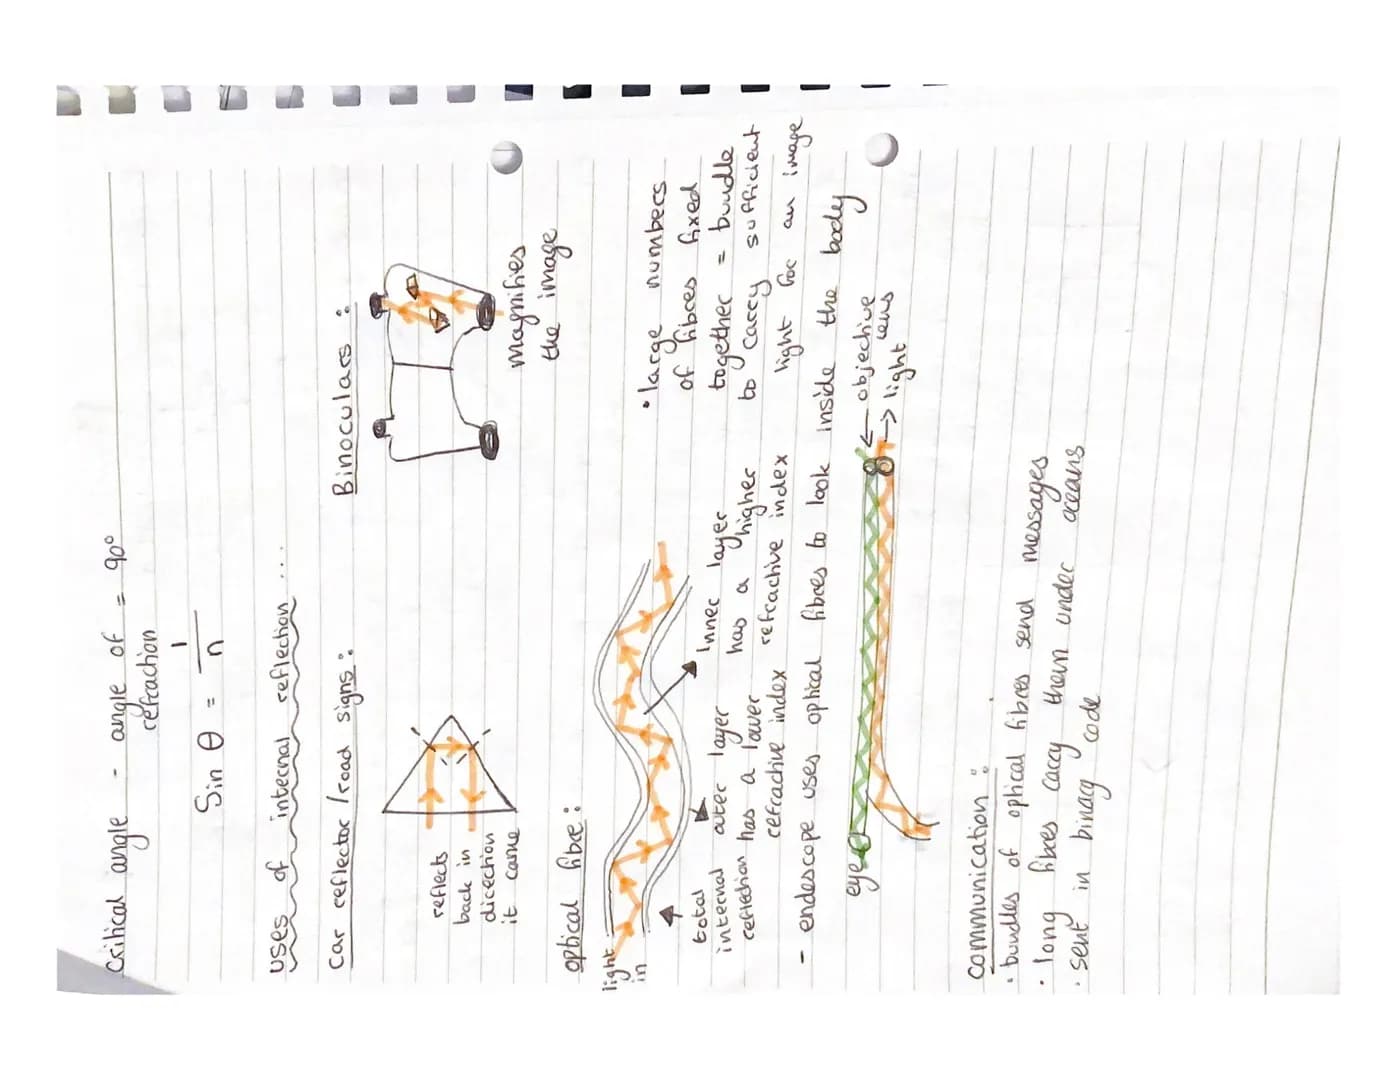 Critical angle - angle of = 90°
refraction
Sin θ = 1/n
Uses of internal reflection...
Car reflector /road signs:
reflects
back in
direction
it came
Binoculars:
magnifies
the image
optical fibre:
light
in
total
internal
reflection
outer layer
has a lower
refractive index
Inner layer
has a higher
refractive index
• large numbers
of fibres fixed
together = bundle
to carry sufficient
light for an image
- endescope uses optical fibres to look inside the body
eye
← objective
lens
→ light
communication:
• bundles of optical fibres send messages
• long fibres carry them under oceans
• sent in binary code